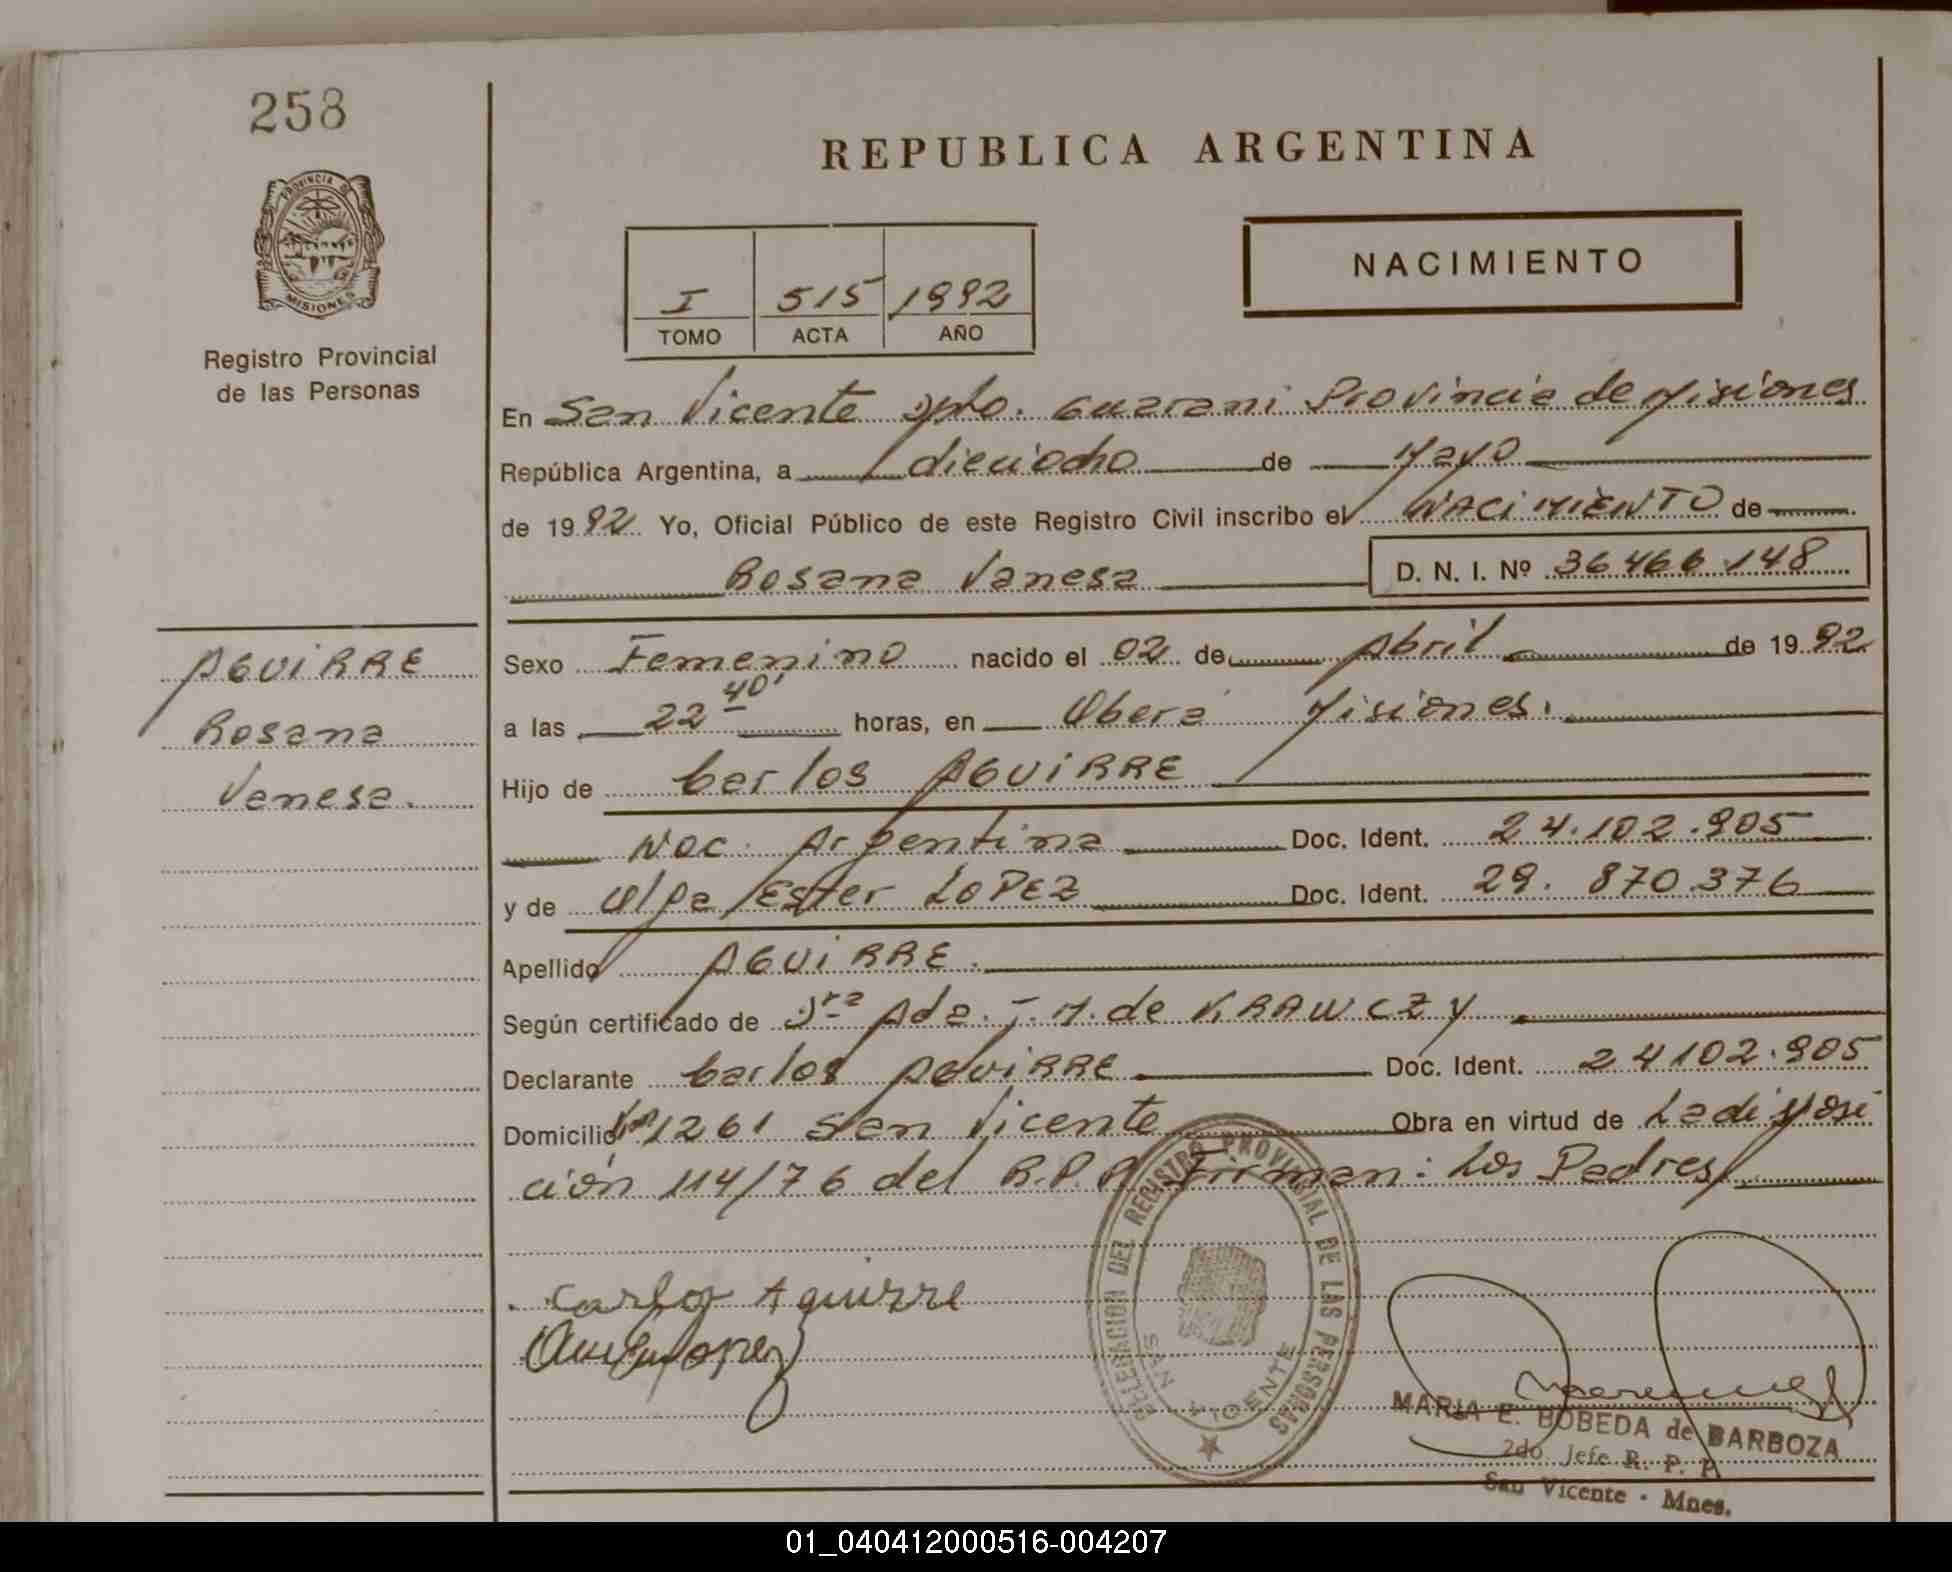 258
PROVINCIA DE
MISIONES
Registro Provincial
de las Personas
REPUBLICA ARGENTINA
NACIMIENTO
I 515 1992
TOMO ACTA AÑO
En San Vicente Dpto. Guarani Provincia de Misiones
República Argentina, a dieciocho de Mayo
de 1992 Yo, Oficial Público de este Registro Civil inscribo el NACIMIENTO de
Rosana Vanesa D. N. I. Nº 36466148
AGUIRRE
Rosana
Vanesa.
Sexo Femenino nacido el 02 de Abril de 1992
a las 22 40' horas, en Oberá Misiones.
Hijo de Carlos AGUIRRE
Nac. Argentina Doc. Ident. 24.102.905
y de Olga Ester LOPEZ Doc. Ident. 29.870.376
Apellido AGUIRRE.
Según certificado de Dra Ada. T. M. de KRAWCZY
Declarante Carlos AGUIRRE Doc. Ident. 24102.905
Domicilio 1261 San Vicente Obra en virtud de La disposi
ción 114/76 del R.P.P. Firman: Los Padres
Carlos Aguirre
Lopez
DELEGACION DEL REGISTRO PROVINCIAL DE LAS PERSONAS
SAN VICENTE
MARIA E. BOBEDA de BARBOZA
2do. Jefe R. P. P.
San Vicente - Mnes.
01_040412000516-004207